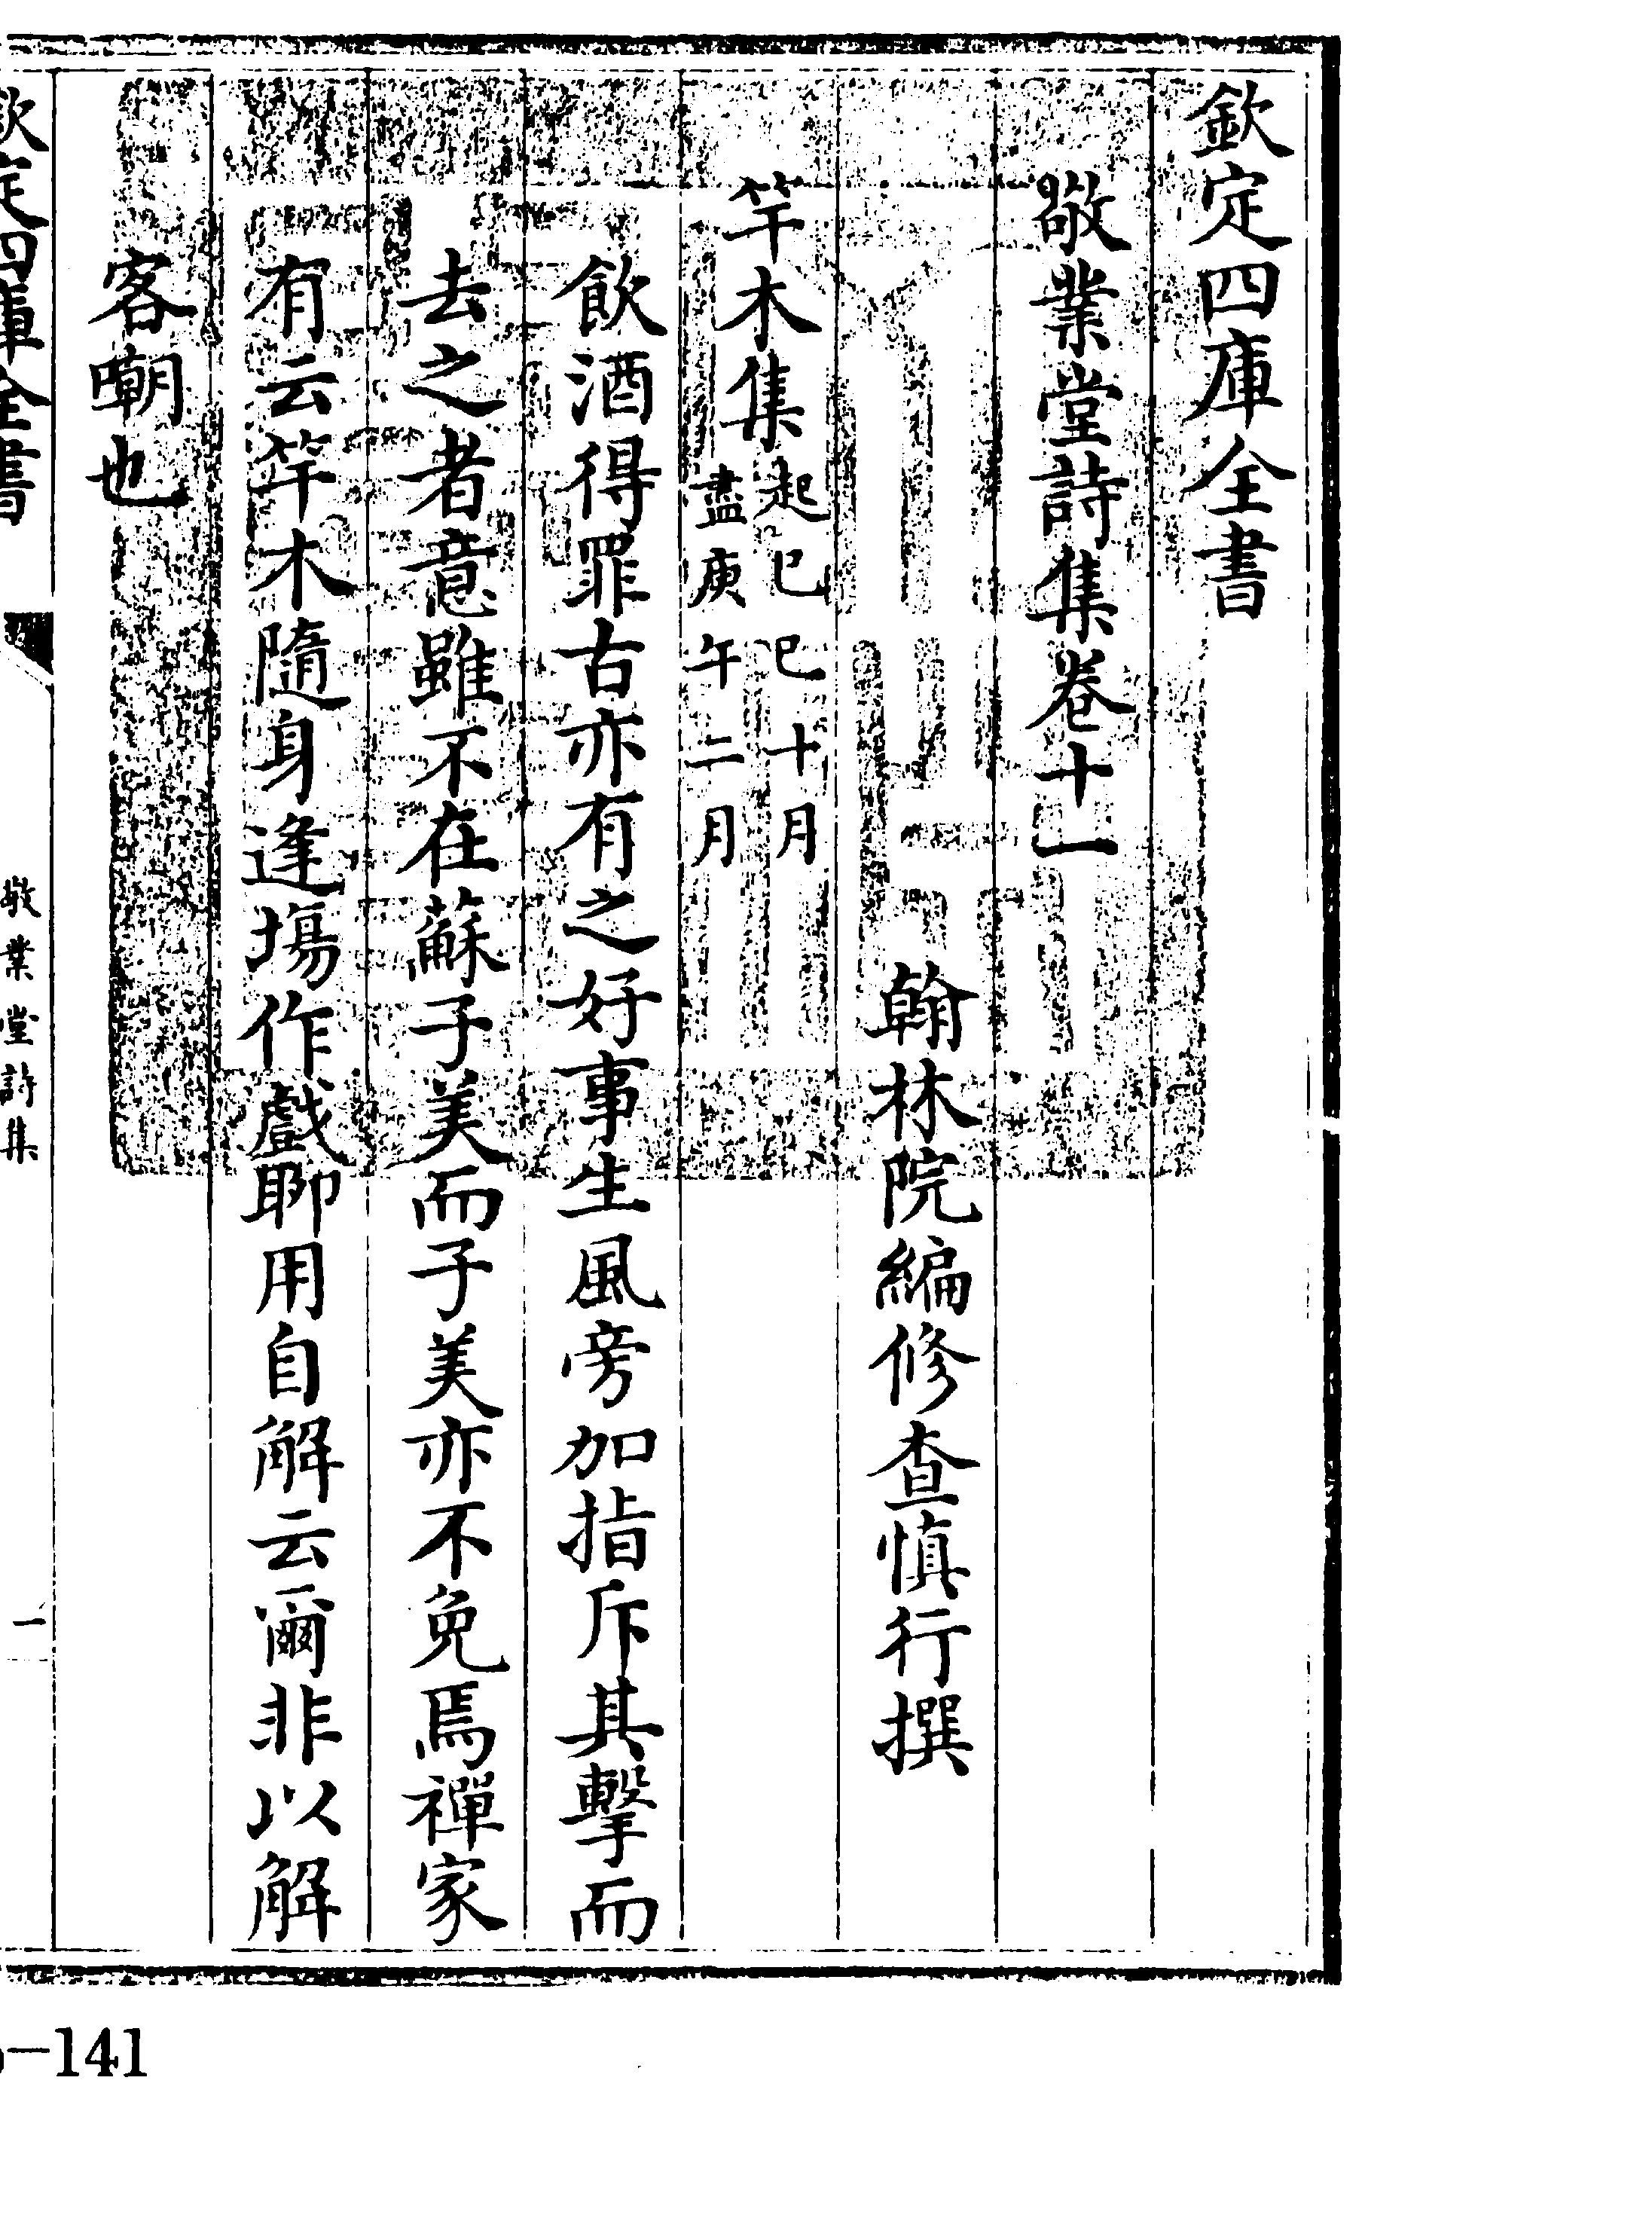 欽定四庫全書
敬業堂詩集卷十一
翰林院編修查慎行撰
竿木集起己巳十月盡庚午二月
飲酒得罪古亦有之好事生風旁加指斥其擊而
去之者意雖不在蘇子美而子美亦不免焉禪家
有云竿木隨身逢場作戲聊用自解云爾非以解
客嘲也
欽定四庫全書
敬業堂詩集
一
-141